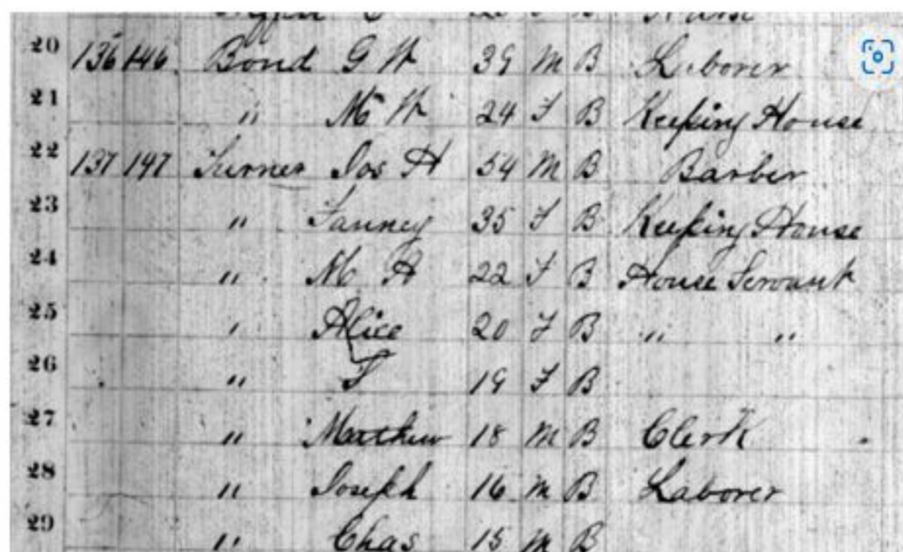 20 136 146 Bond G W 39 M B Laborer
21 " M W 24 F B Keeping House
22 137 147 Turner Jos H 54 M B Barber
23 " Fanney 35 F B Keeping House
24 " M A 22 F B House Servant
25 " Alice 20 F B " "
26 " F 19 F B
27 " Mathew 18 M B Clerk
28 " Joseph 16 M B Laborer
29 " Chas 15 M B